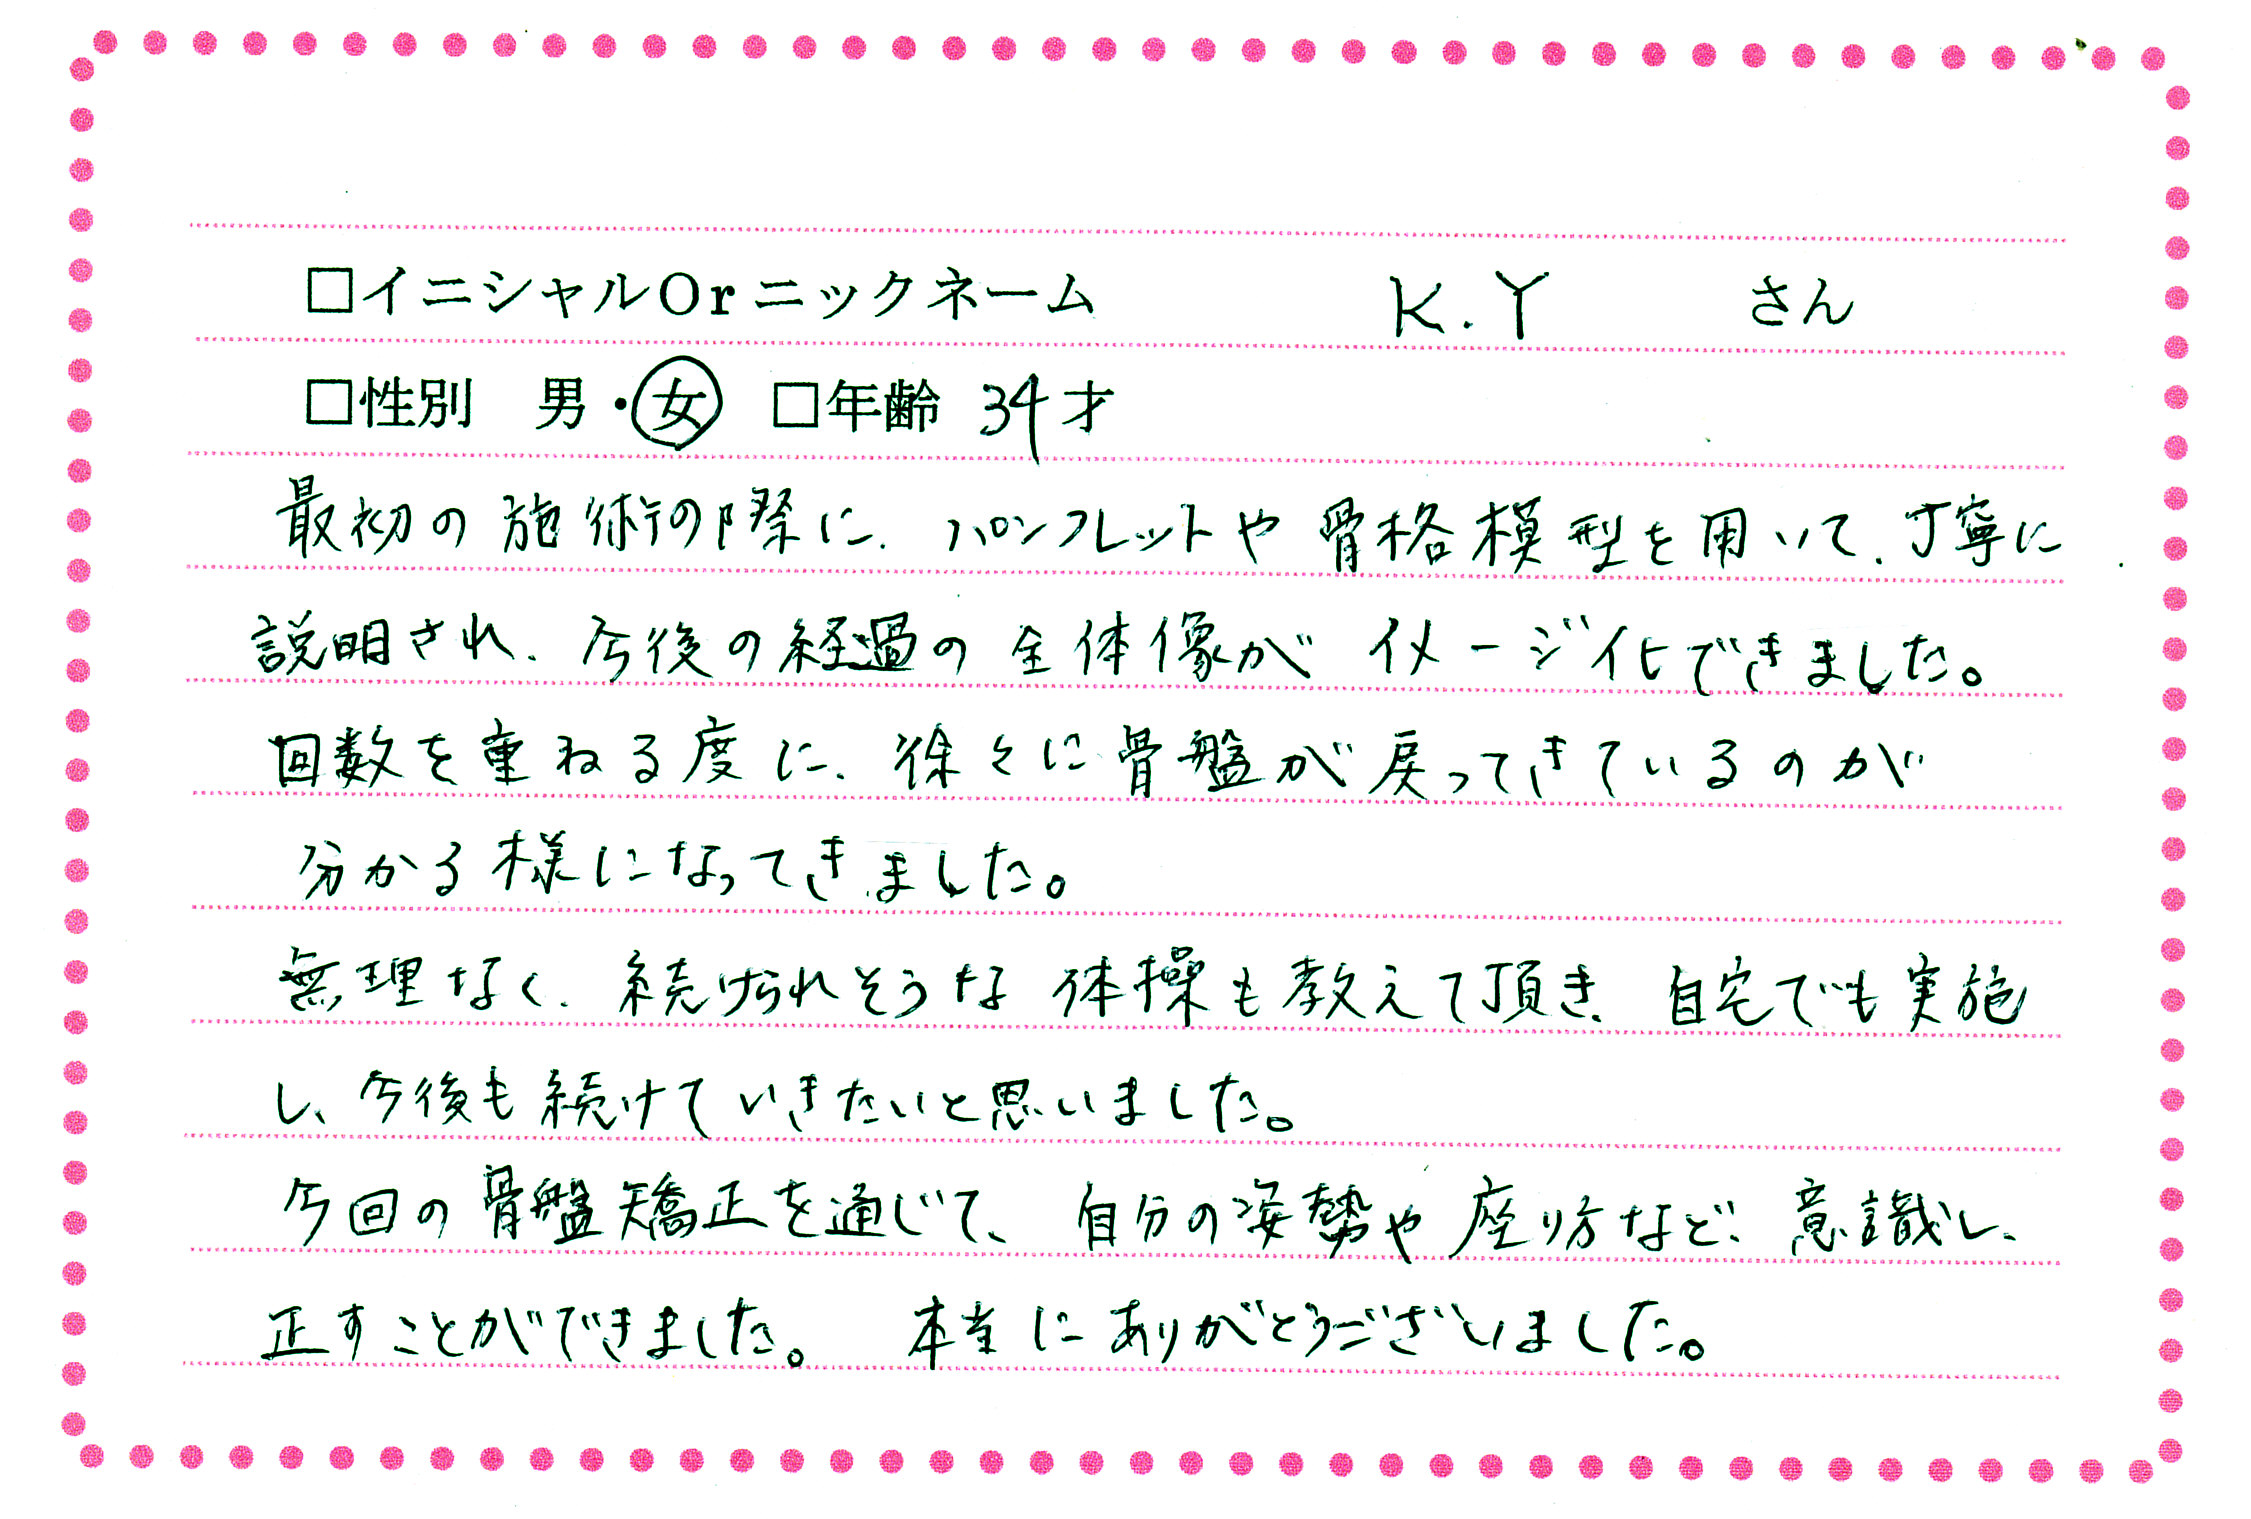 □イニシャルOrニックネーム K.Y さん
□性別 男・女 □年齢 34才
最初の施術の際に、パンフレットや骨格模型を用いて、丁寧に
説明され、今後の経過の全体像がイメージ化できました。
回数を重ねる度に、徐々に骨盤が戻ってきているのが
分かる様になってきました。
無理なく、続けられそうな体操も教えて頂き、自宅でも実施
し、今後も続けていきたいと思いました。
今回の骨盤矯正を通じて、自分の姿勢や座り方など、意識し、
正すことができました。 本当にありがとうございました。